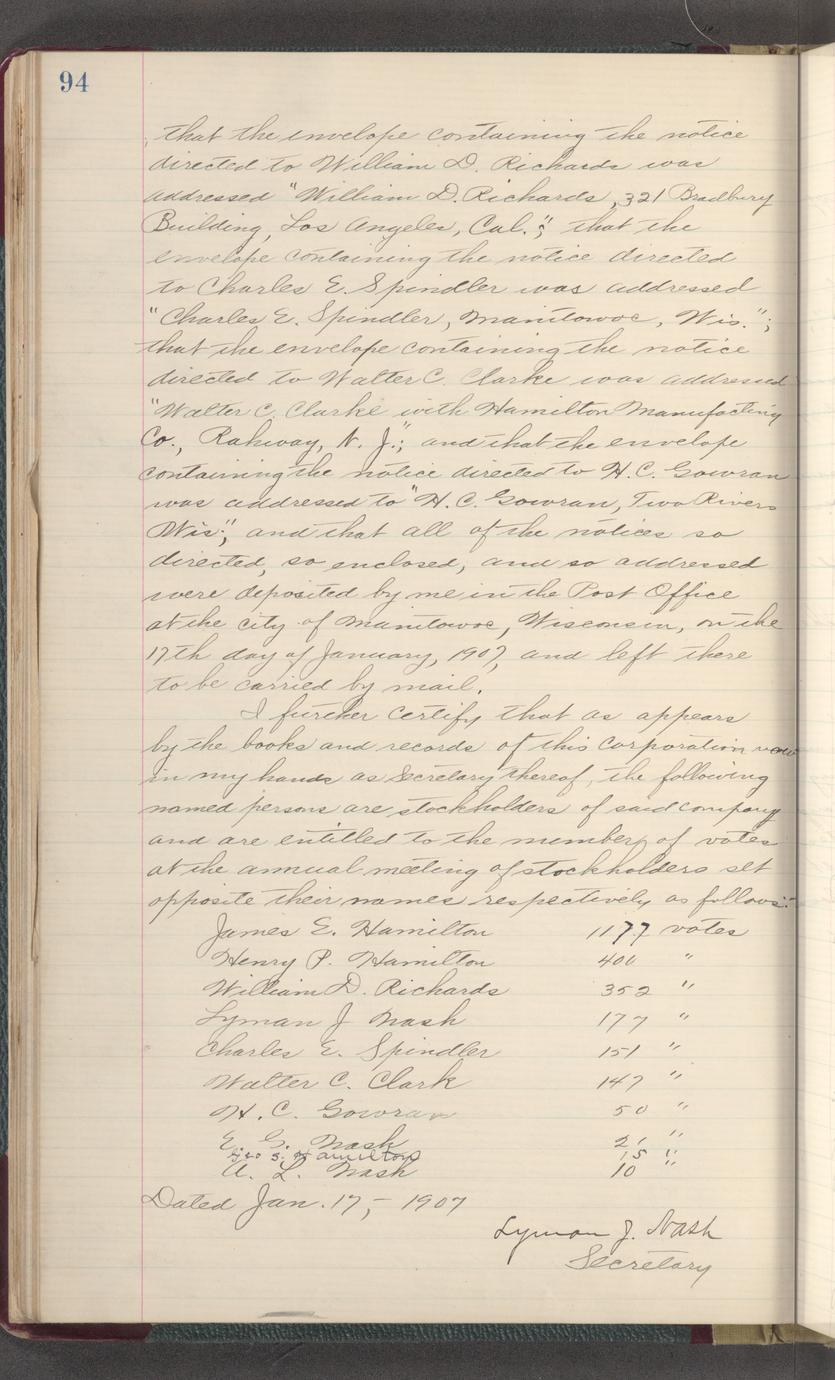 94
that the envelope containing the notice
directed to William D. Richards was
addressed "William D. Richards, 321 Bradbury
Building, Los Angeles, Cal."; that the
envelope containing the notice directed
to Charles E. Spindler was addressed
"Charles E. Spindler, Manitowoc, Wis.";
that the envelope containing the notice
directed to Walter C. Clarke was addressed
"Walter C. Clarke with Hamilton Manufacting
Co., Rahway, N. J."; and that the envelope
containing the notice directed to H. C. Gowran
was addressed to "H. C. Gowran, Two Rivers
Wis"; and that all of the notices so
directed, so enclosed, and so addressed
were deposited by me in the Post Office
at the city of Manitowoc, Wisconsin, on the
17th day of January, 1907, and left there
to be carried by mail.
I further certify that as appears
by the books and records of this corporation now
in my hands as Secretary thereof, the following
named persons are stockholders of said company
and are entitled to the number of votes
at the annual meeting of stockholders set
opposite their names respectively as follows:-
James E. Hamilton 1177 votes
Henry P. Hamilton 400 "
William D. Richards 352 "
Lyman J Nash 177 "
Charles E. Spindler 151 "
Walter C. Clark 147 "
H. C. Gowran 50 "
E. G. Nash 21 "
Geo S. Hamilton 15 "
A. L. Nash 10 "
Dated Jan. 17,- 1907
Lyman J. Nash
Secretary